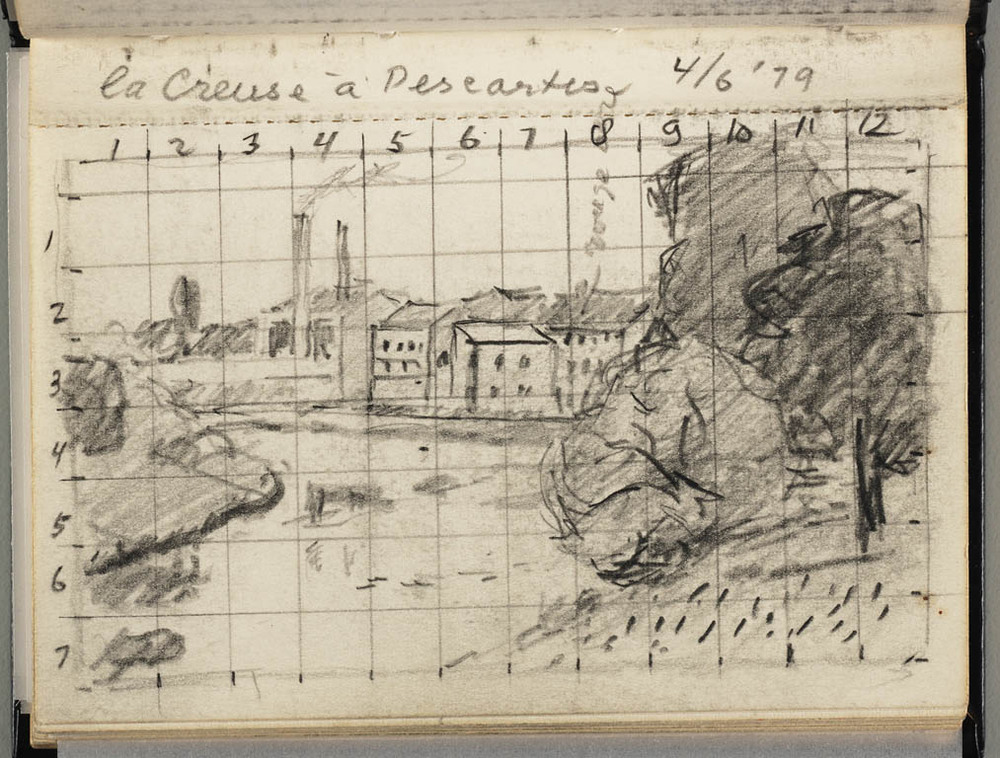 la Creuse à Descartes 4/6 '79
1 2 3 4 5 6 7 8 9 10 11 12
rouge
1
2
3
4
5
6
7